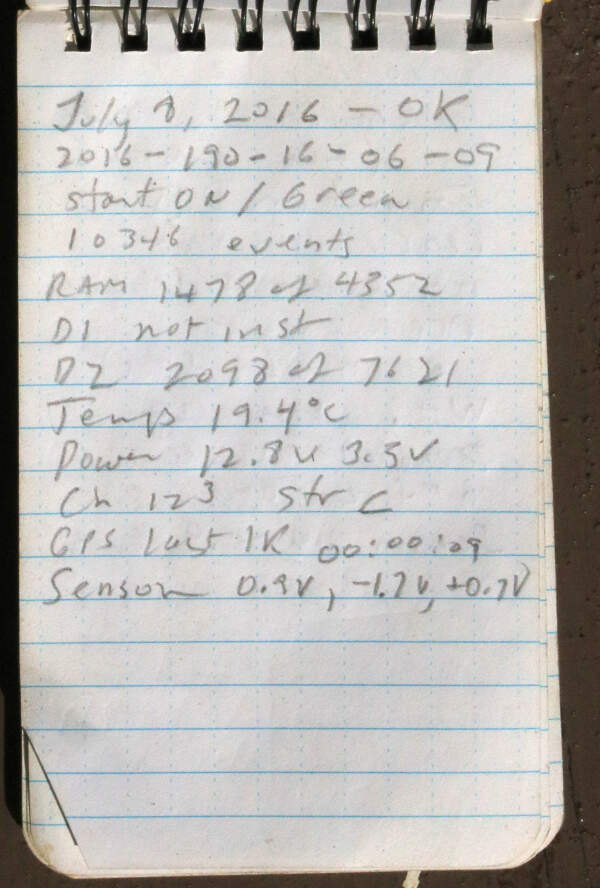 July 8, 2016 - OK
2016-190-16-06-09
start ON / Green
10346 events
RAM 1478 of 4352
D1 not inst
D2 2098 of 7621
Temp 19.4°C
Power 12.8v 3.3v
Ch 123 Str C
GPS Last 1K 00:00:09
Sensor 0.9V, -1.7V, +0.7V